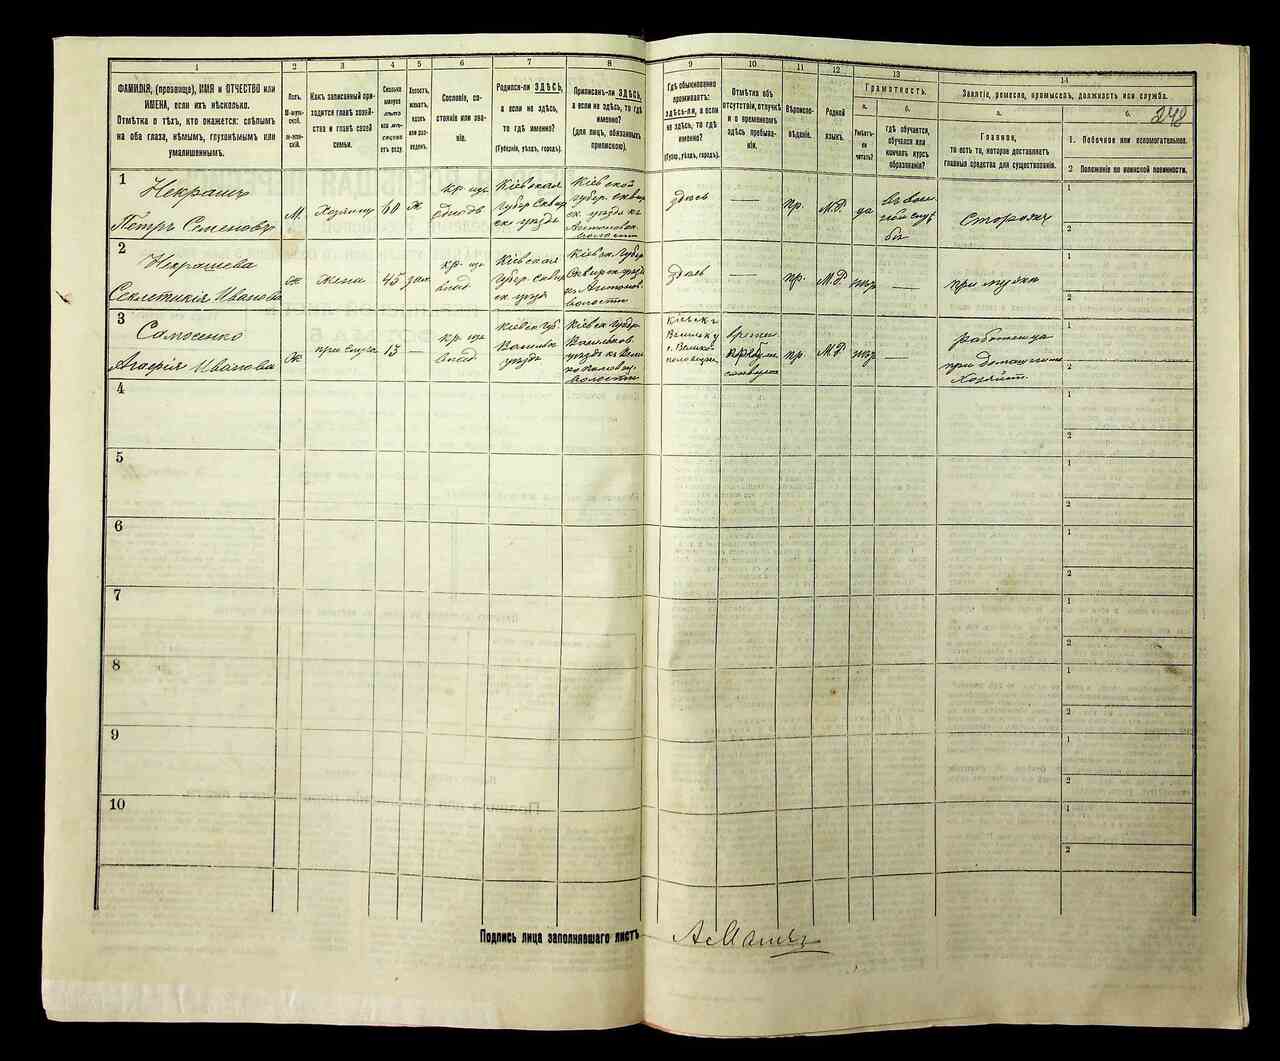 1
2
3
4
5
6
7
8
9
10
11
12
13
14
ФАМИЛІЯ, (прозвище), ИМЯ и ОТЧЕСТВО или
ИМЕНА, если ихъ нѣсколько.
Отмѣтка о тѣхъ, кто окажется: слѣпымъ
на оба глаза, нѣмымъ, глухонѣмымъ или
умалишеннымъ.
Полъ.
М-мужской.
Ж-женскій.
Какъ записанный при-
ходится главѣ хозяй-
ства и главѣ своей
семьи.
Сколько
минуло
лѣтъ
или мѣ-
сяцевъ
отъ роду.
Холостъ,
женатъ,
вдовъ
или раз-
веденъ.
Сословіе, со-
стояніе или зва-
ніе.
Родился-ли ЗДѢСЬ,
а если не здѣсь,
то гдѣ именно?
(Губернія, уѣздъ, городъ).
Приписанъ-ли ЗДѢСЬ,
а если не здѣсь, то гдѣ
именно?
(для лицъ, обязанныхъ
припискою).
Гдѣ обыкновенно
проживаетъ:
здѣсь-ли, а если
не здѣсь, то гдѣ
именно?
(Губ., уѣздъ, городъ).
Отмѣтка объ
отсутствіи, отлучкѣ
и о временномъ
здѣсь пребыва-
ніи.
Вѣроиспо-
вѣданіе.
Родной
языкъ.
Грамотность.
а.
Умѣетъ-
ли
читать?
б.
гдѣ обучается,
обучался или
кончилъ курсъ
образованія?
Занятіе, ремесло, промыселъ, должность или служба.
а.
Главное,
то есть то, которое доставляетъ
главныя средства для существованія.
б.
242
1. Побочное или вспомогательное.
2 Положеніе по воинской повинности.
1
Некрашъ
Петръ Семеновъ
М.
Хозяинъ
60
ж
кр. изъ
Кіевская
губер. Сквир
ск. уѣздъ
Кіевской
губер. Сквир
ск. уѣзда
волости
здѣсь
—
пр.
М.Р.
да
въ воен
ной служ
бѣ
Сторожъ
1
2
2
Некрашева
Секлетикія Иванова
ж
жена
45
зам
кр. изъ
Кіевская
губер. Сквир
ск. уѣзд
Кіевск. губер
Сквирск. уѣзд
волости
здѣсь
—
пр.
М.Р.
нѣтъ
—
при мужѣ
1
2
3
Самосенко
Агафія Иванова
ж
прислуга
13
—
кр. изъ
Кіевск. губ.
Васильк
уѣзда
Кіевск. губер
Васильков.
уѣзда
волости
Кіевск. г
Васильк. у
с. Велико-
половецк.
времен
пр.
М.Р.
нѣтъ
—
Работница
при домашнемъ
хозяйст.
1
2
4
1
2
5
1
2
6
1
2
7
1
2
8
1
2
9
1
2
10
1
2
Подпись лица заполнявшаго листъ